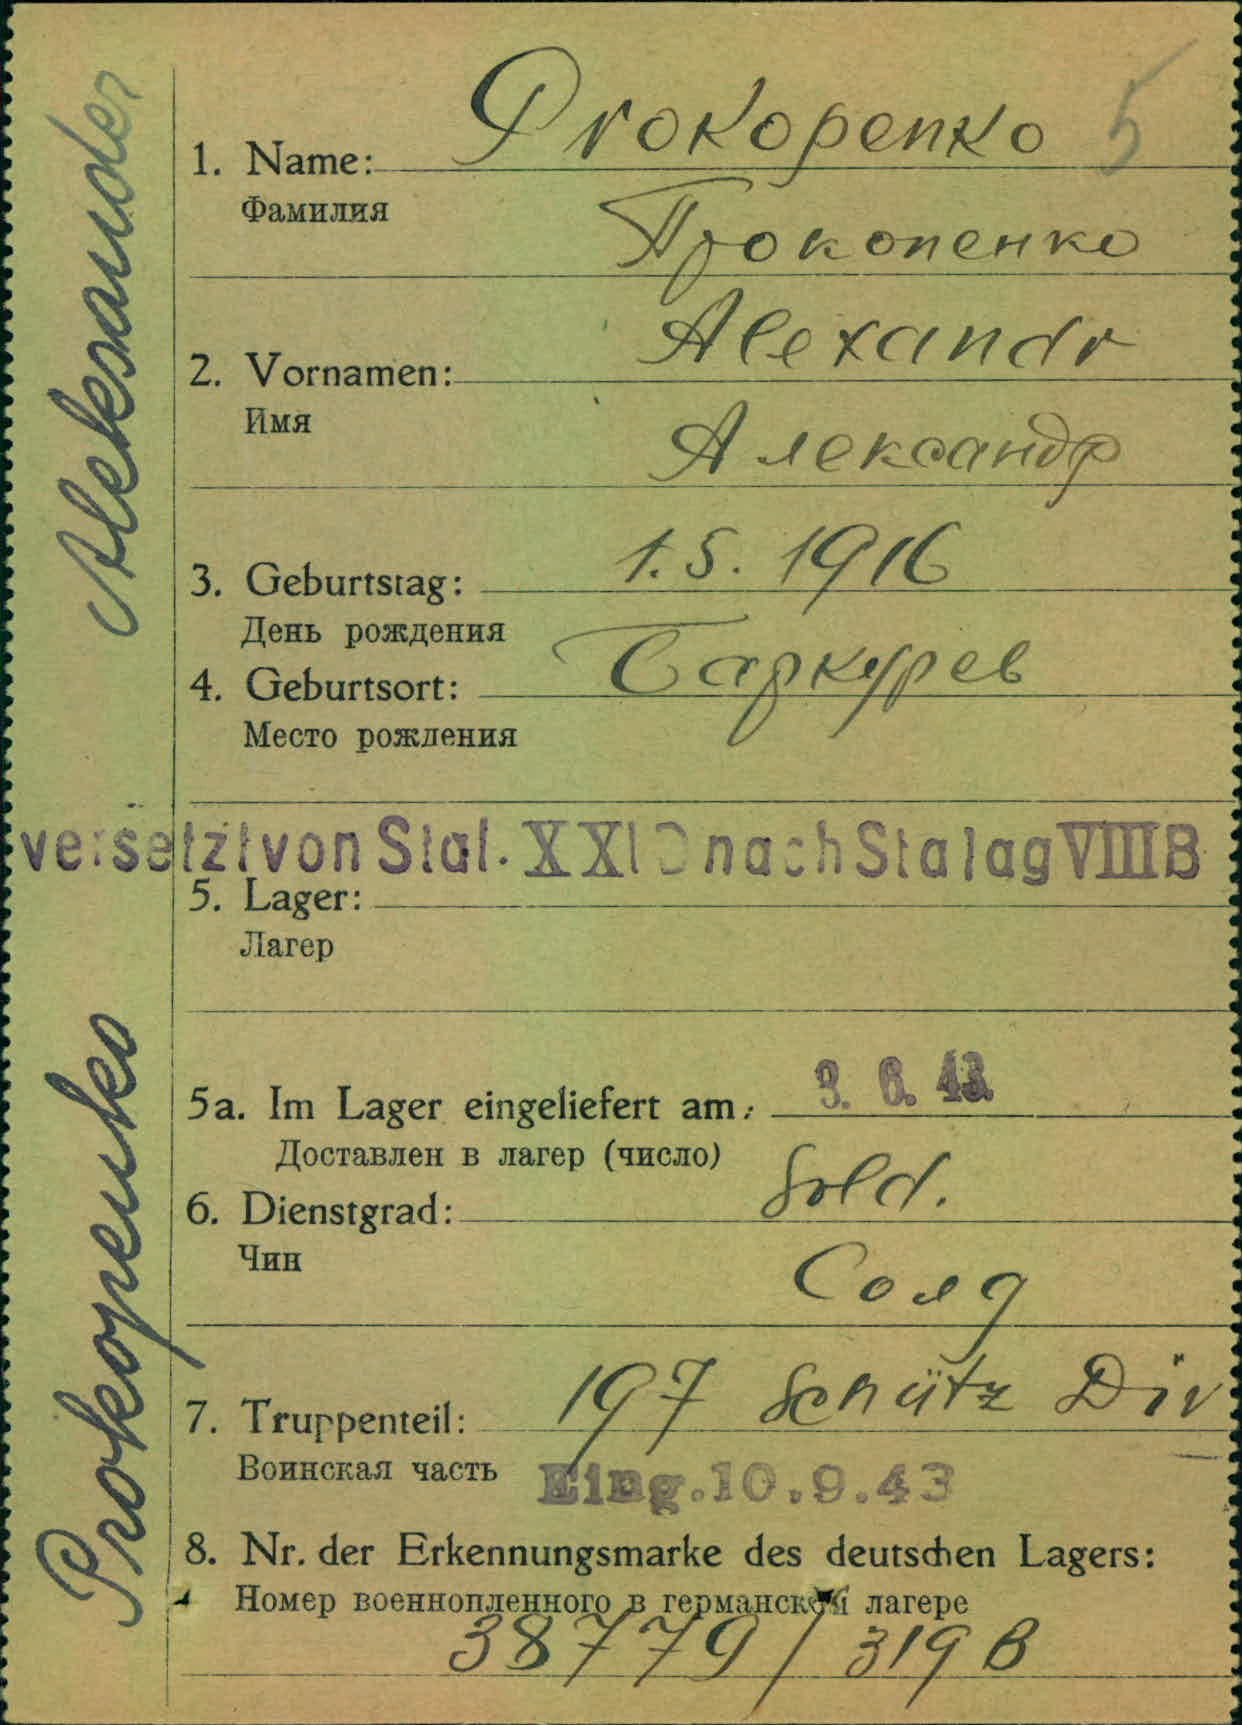 Prokopenko 5
1. Name:
Фамилия
Прокопенко
Alexandr
2. Vornamen:
Имя
Александр
3. Geburtstag: 1.5.1916
День рождения
4. Geburtsort: Баркурев
Место рождения
versetzt von Stal. XXI nach Stalag VIII B
5. Lager:
Лагер
5a. Im Lager eingeliefert am: 3. 6. 43.
Доставлен в лагер (число)
6. Dienstgrad: Sold.
Чин
Солд
7. Truppenteil: 197 Schütz Div
Воинская часть Eing. 10.9.43
8. Nr. der Erkennungsmarke des deutschen Lagers:
Номер военнопленного в германской лагере
38779/319 B
Prokopenko Aleksander